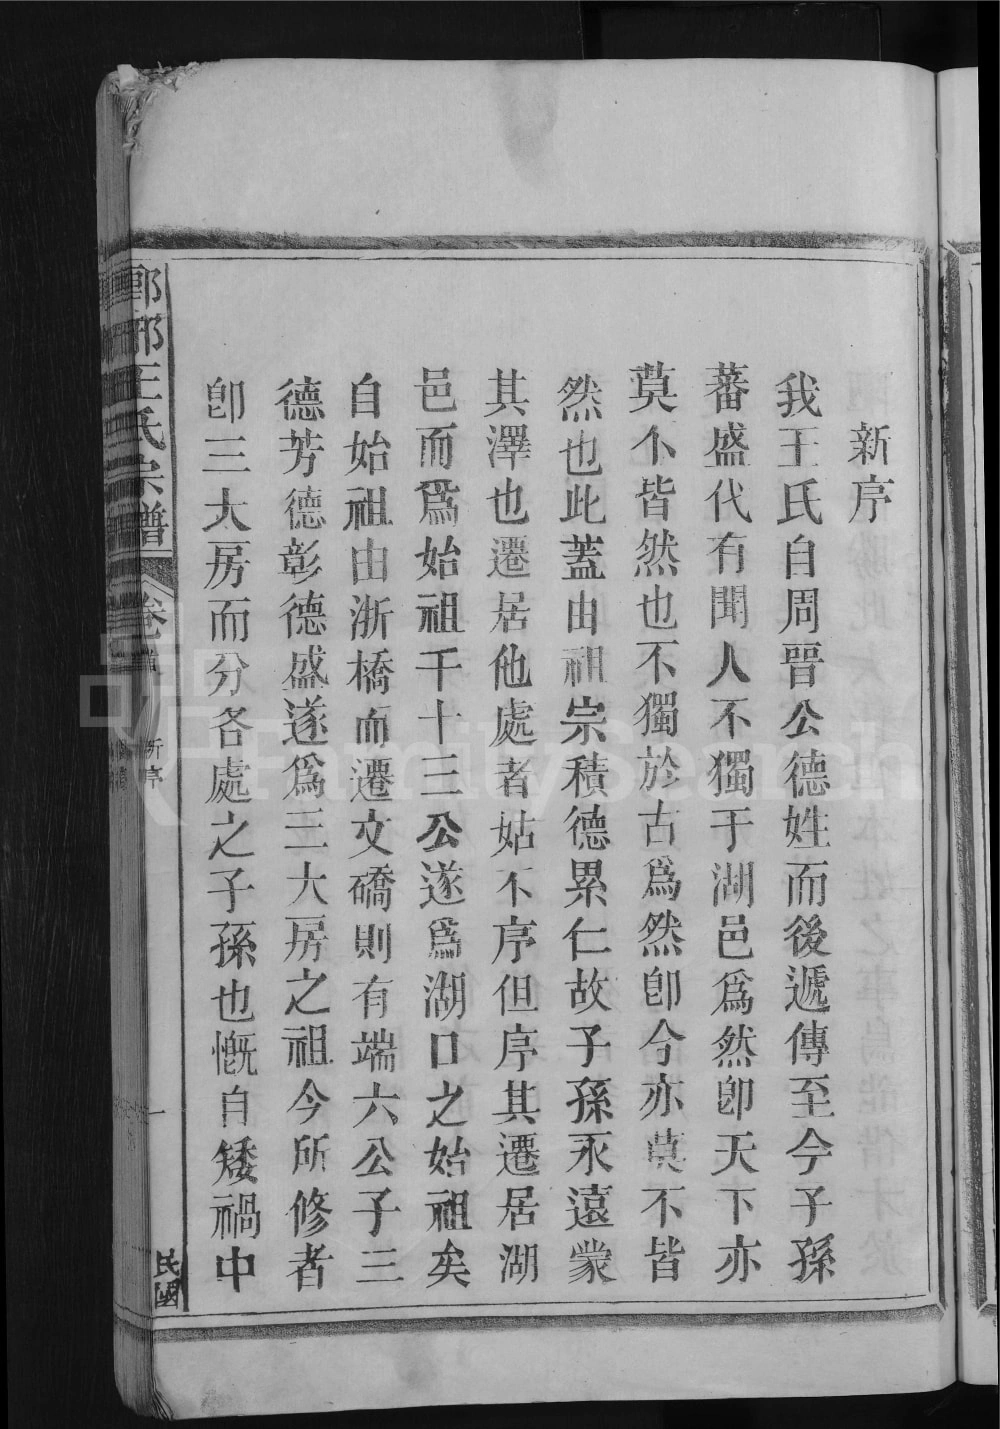 新序
我王氏自周晉公德姓而後遞傳至今子孫
蕃盛代有聞人不獨于湖邑爲然卽天下亦
莫不皆然也不獨於古爲然卽今亦莫不皆
然也此蓋由祖宗積德累仁故子孫永遠蒙
其澤也遷居他處者姑不序但序其遷居湖
邑而爲始祖千十三公遂爲湖口之始祖矣
自始祖由浙橋而遷文磽則有端六公子三
德芳德彰德盛遂爲三大房之祖今所修者
卽三大房而分各處之子孫也慨自矮禍中
郎邪王氏宗譜
卷首
新序
一
民國
FamilySearch